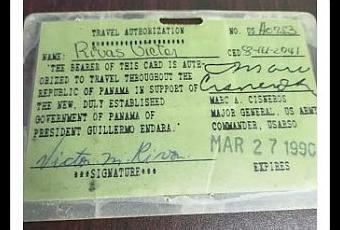 TRAVEL AUTHORIZATION
NO. US A0753
NAME: Rivas Victor
CED 8-441-2041
"THE BEARER OF THIS CARD IS AUTH-
ORIZED TO TRAVEL THROUGHOUT THE
REPUBLIC OF PANAMA IN SUPPORT OF
THE NEW, DULY ESTABLISHED
GOVERNMENT OF PANAMA OF
PRESIDENT GUILLERMO ENDARA."
Marc Cisneros
MARC A. CISNEROS
MAJOR GENERAL, US ARMY
COMMANDER, USARSO
MAR 27 1990
EXPIRES
Victor M. Rivas
***SIGNATURE***